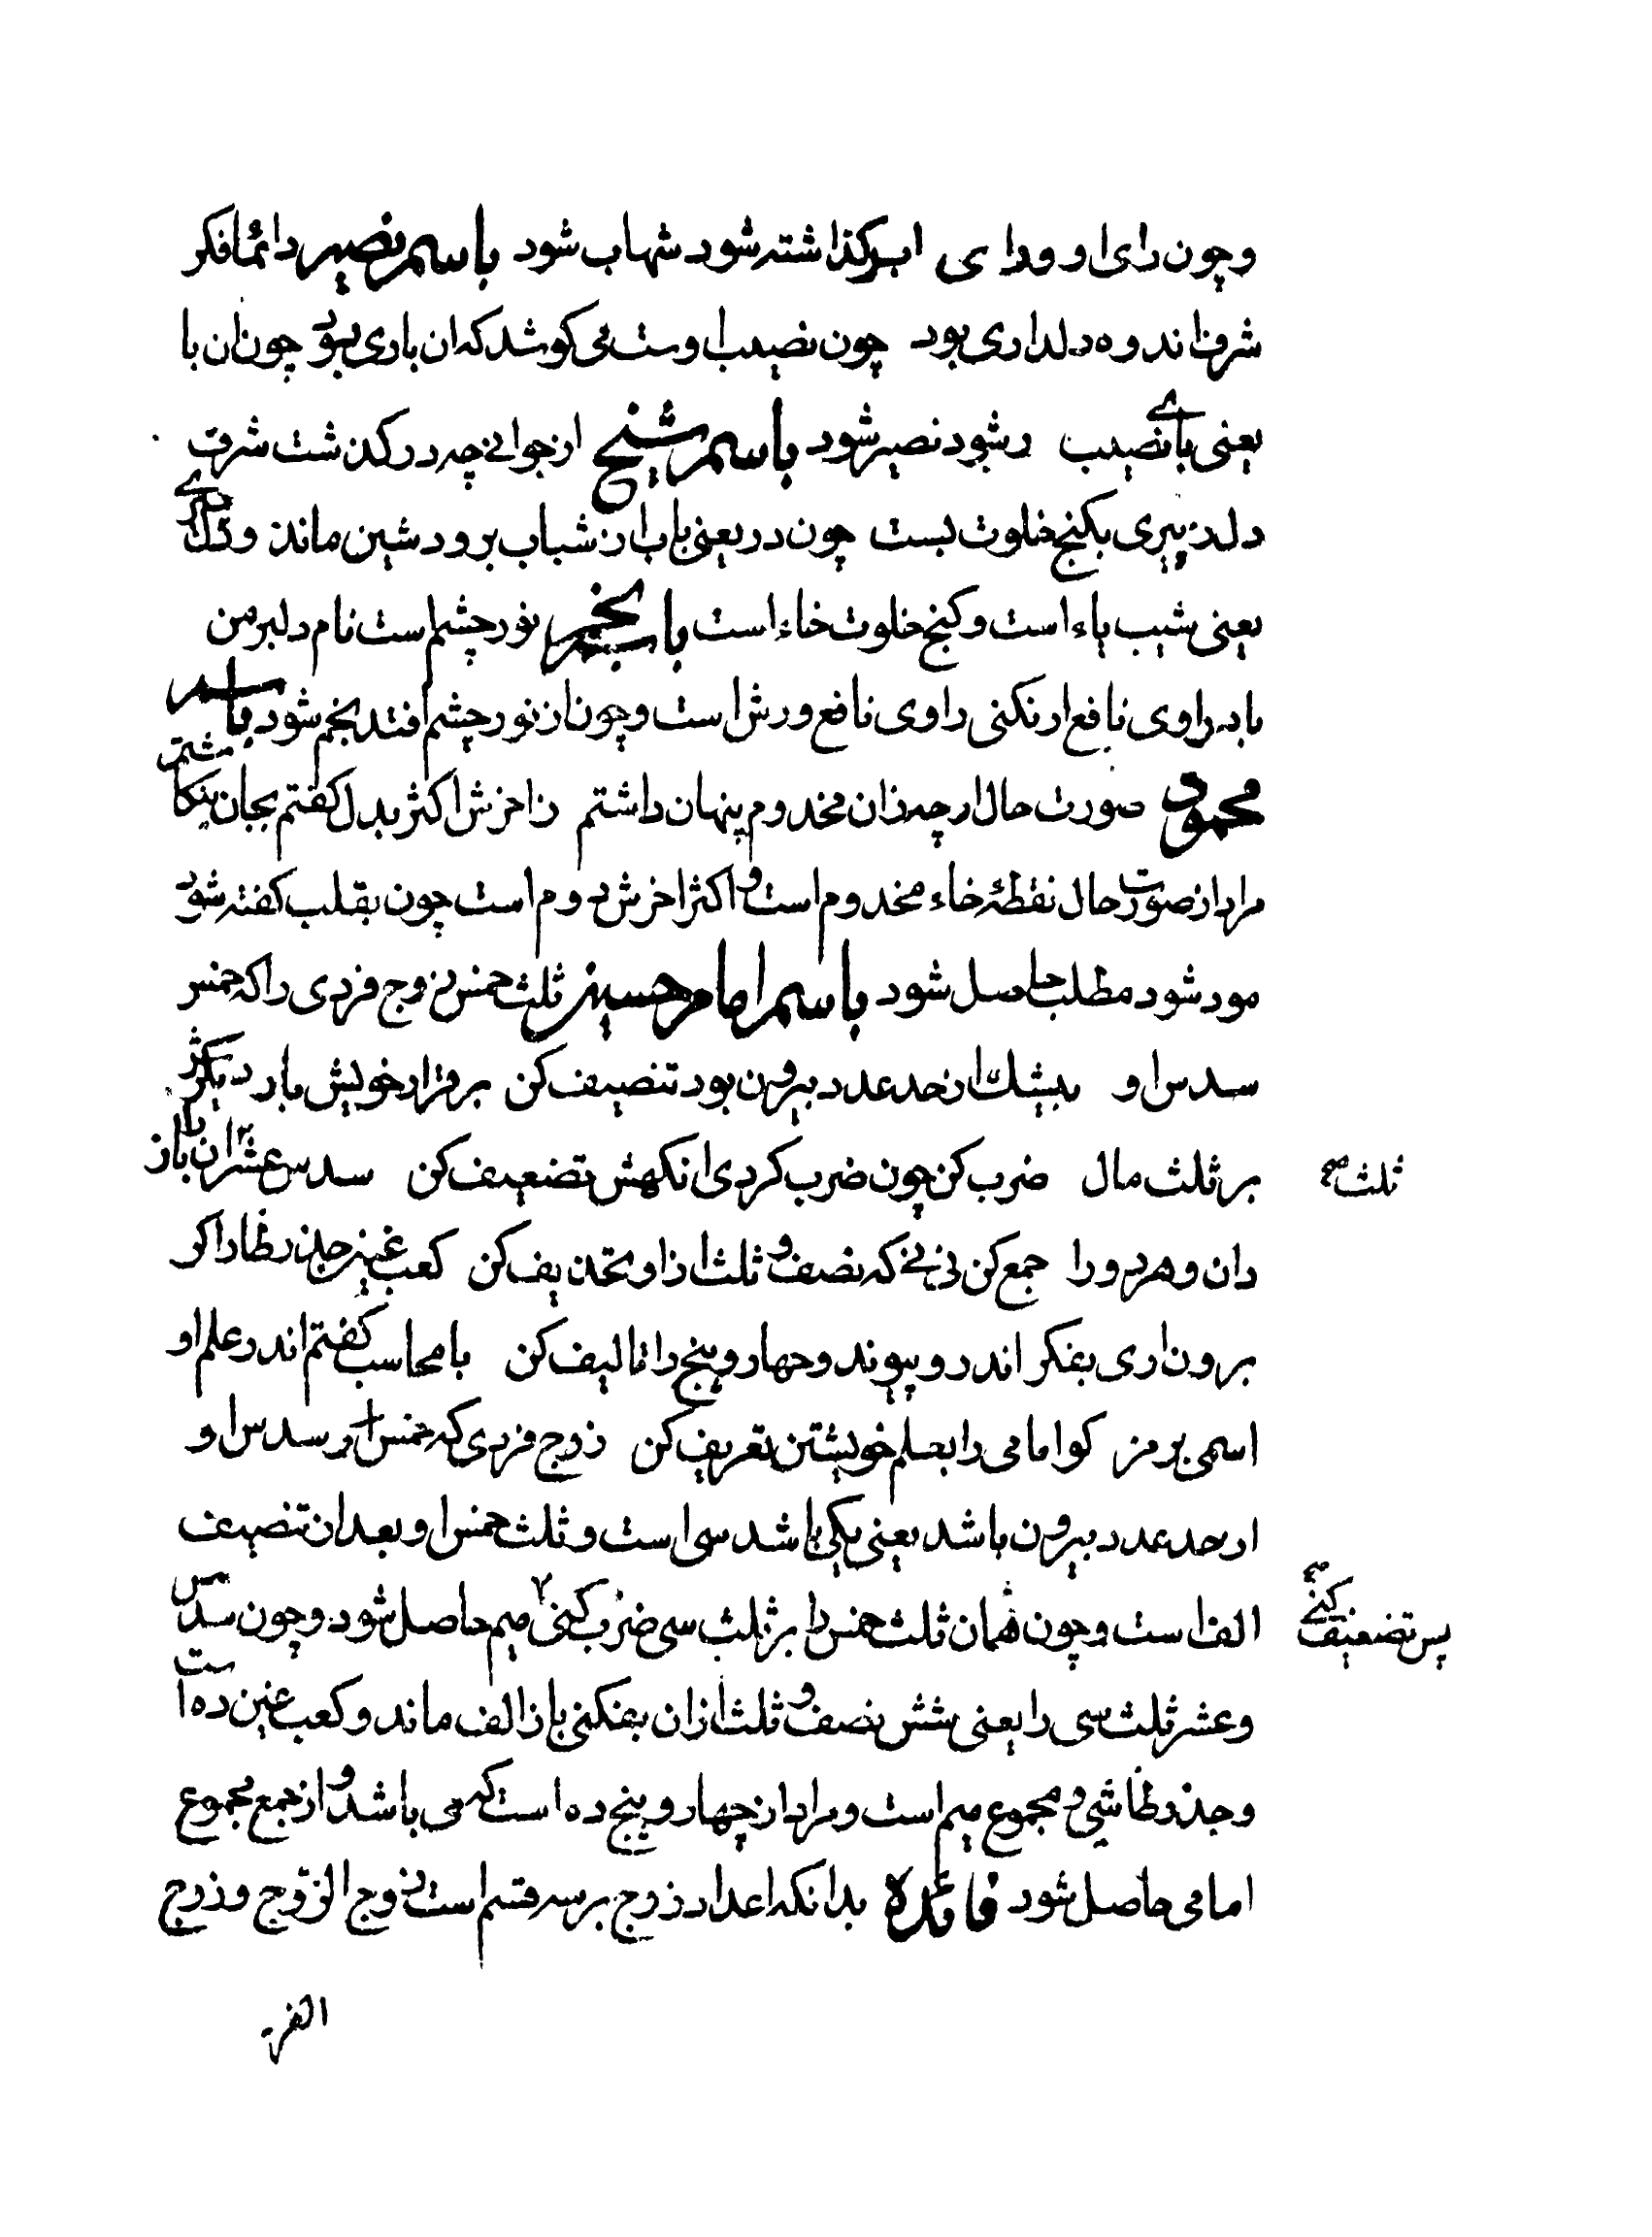 وچون رای او ورای اب کذاشته شود شهاب شود باسم نصیر دائما فکر
شرف اندوه دلداری بود چون نصیب اوست می کوشد که ان باری بود چون ان با
یعنی بای نصیب ر شود نصیر شود باسم شیخ از جوانی چه در کذشت شرف
دلد پیری بکنج خلوت بست چون در یعنی باب از شباب برود شین ماند و
یعنی شیب یاء است و کنج خلوت خاء است باسم نور چشم است نام دلبر من
یابد راوی نافع ار نکنی راوی نافع ورش است و چون از نور چشم افتد نجم شود باسم
محمود صورت حال ار چه زان مخدوم پنهان داشتم زاخرش اکثر بدل کفتم بجان
مراد از صورت حال نقطۀ خاء مخدوم است و اکثر اخرش دوم است چون بقلب کفته شود
مود شود مطلب حاصل شود باسم امام حسین ثلث خمس زوج فردی را که خمس
سدس او بیشک از حد عدد بیرون بود تنصیف کن بر قرار خویش بار دیکر
بر ثلث مال ضرب کن چون ضرب کردی انکهش تضعیف کن سدس عشر ان باز
ثلث صح
دان و هر دو را جمع کن نی نی که نصف و ثلث از او تحذیف کن کعب غین و جذر ظا را کر
برون اری بفکر اندرو پیوند و چهار و پنج را تالیف کن با محاسب کفتم اندر علم او
اسمی برمز کو امامی را بعلم خویشتن تعریف کن زوج فردی که خمس از سدس او
از حد عدد بیرون باشد یعنی یکی باشد سی است و ثلث خمس او بعد از تنصیف
الف است و چون همان ثلث خمس را بر ثلث سی ضرب کنی میم حاصل شود و چون سدس
پس تضعیف کنی صح
و عشر ثلث سی را یعنی شش نصف و ثلث ازان بفکنی باز الف ماند و کعب غین ده است
و جذر ظا سی و مجموع میم است و مراد از چهار و پنج ده است که می باشد و از جمع مجموع
امامی حاصل شود فائده بدانکه اعداد زوج بر سه قسم است زوج الزوج و زوج
الفرد